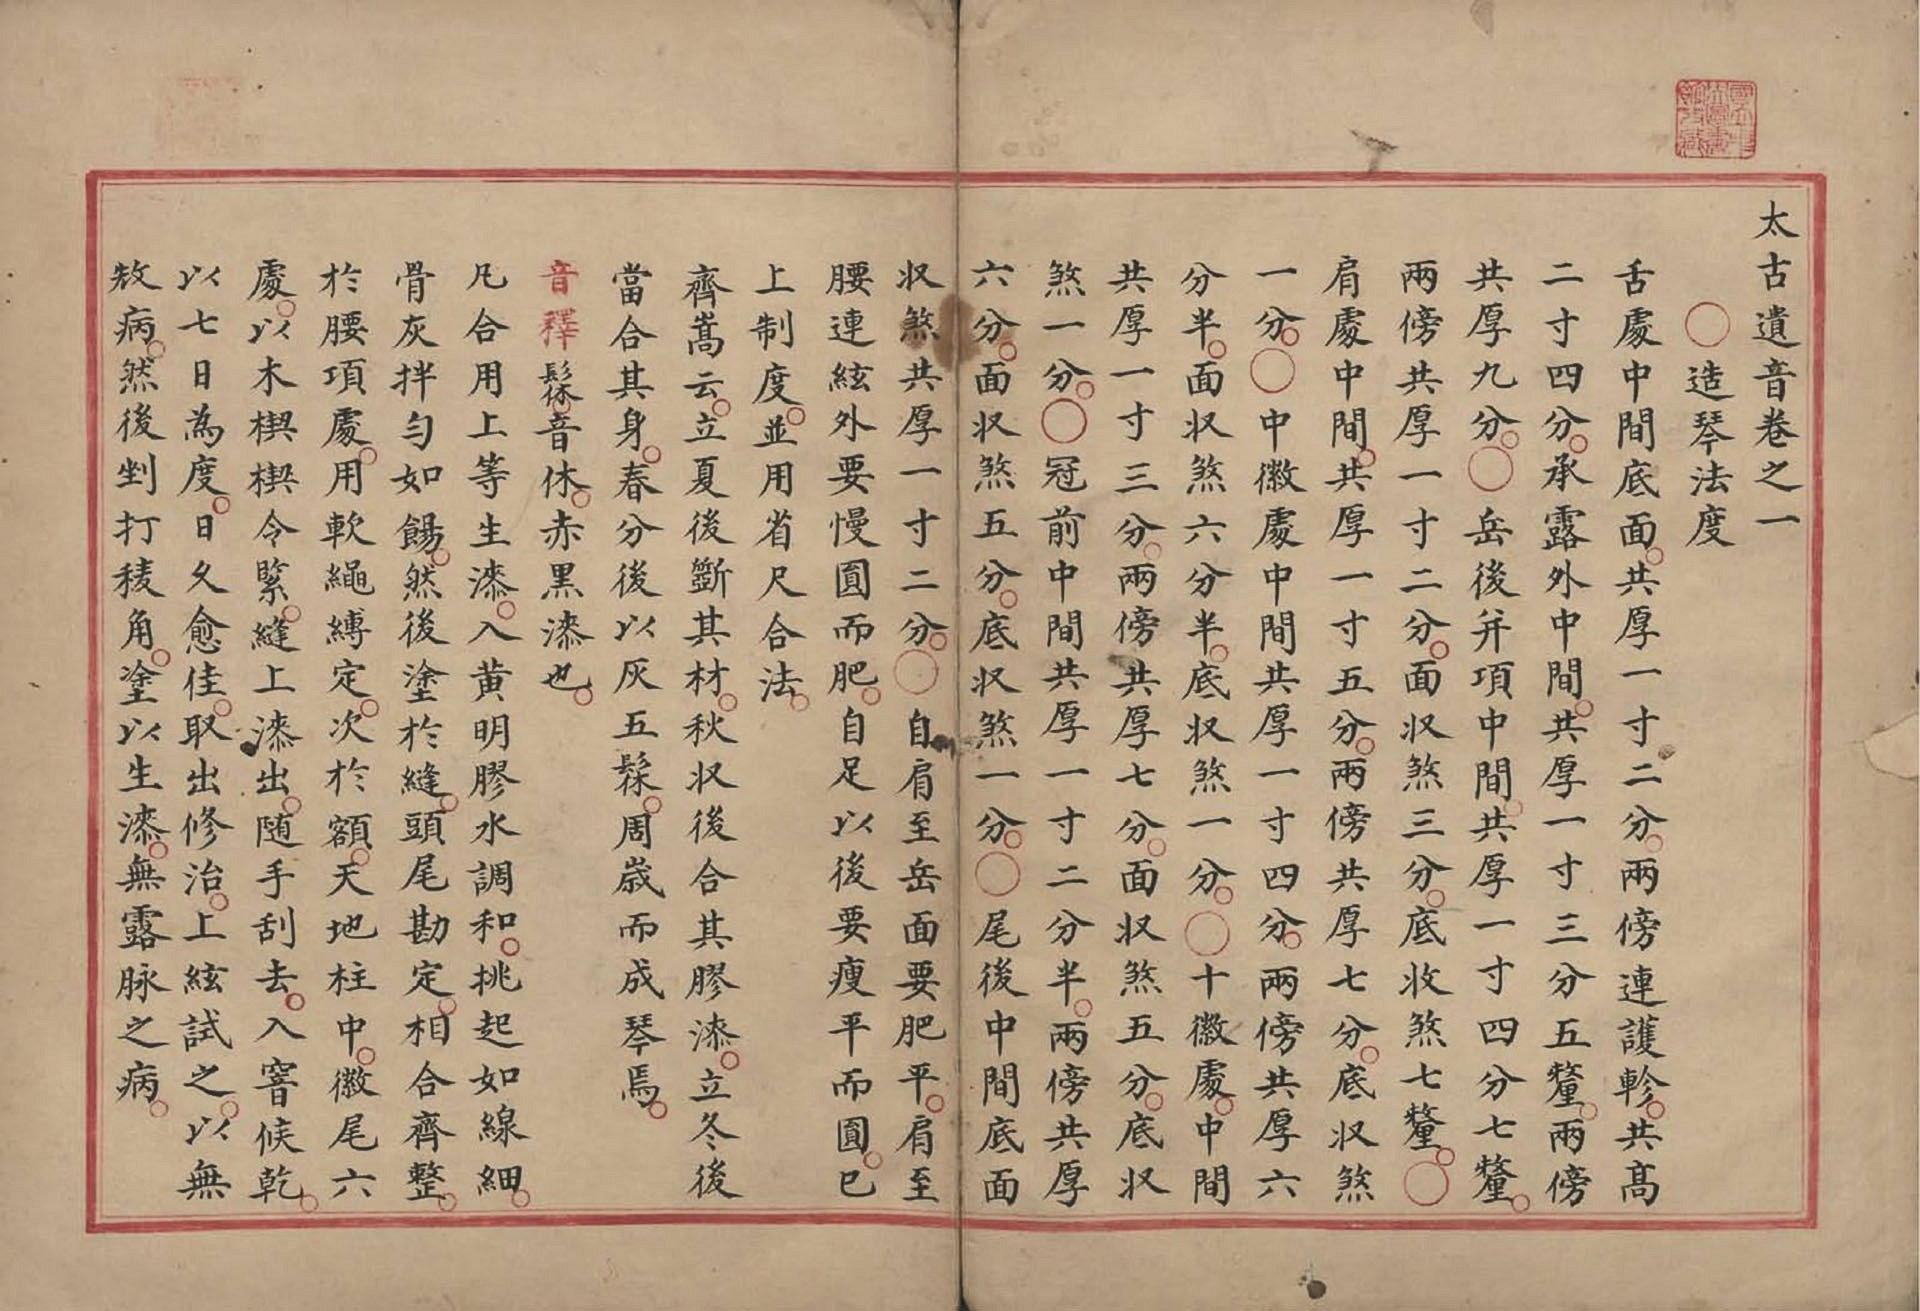 太古遺音卷之一
○造琴法度
舌處中間底面。共厚一寸二分。兩傍連護軫。共高
二寸四分。承露外中間。共厚一寸三分五釐。兩傍
共厚九分。○岳後并項中間。共厚一寸四分七釐。
兩傍共厚一寸二分。面収煞三分。底收煞七釐。○
肩處中間。共厚一寸五分。兩傍共厚七分。底収煞
一分。○中徽處中間共厚一寸四分。兩傍共厚六
分半。面収煞六分半。底収煞一分。○十徽處。中間
共厚一寸三分。兩傍共厚七分。面収煞五分。底収
煞一分。○冠前中間共厚一寸二分半。兩傍共厚
六分。面収煞五分。底収煞一分。○尾後中間底面
収煞共厚一寸二分。○自肩至岳面要肥平。肩至
腰連絃外要慢圓而肥。自足以後要瘦平而圓。已
上制度。並用省尺合法。
齊嵩云。立夏後斵其材。秋収後合其膠漆。立冬後
當合其身。春分後以灰五髹。周歲而成琴焉。
音釋髹。音休。赤黑漆也。
凡合用上等生漆。入黄明膠水調和。挑起如線細。
骨灰拌勻如餳。然後塗於縫。頭尾勘定。相合齊整。
於腰項處。用軟繩縛定。次於額。天地柱中。徽尾六
處。以木楔楔令緊。縫上漆出。随手刮去。入窨候乾。
以七日為度。日久愈佳。取出修治。上絃試之。以無
敖病。然後剉打稜角。塗以生漆。無露脉之病。